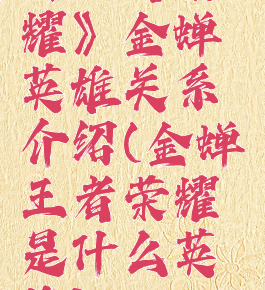 耀》金蝉
英雄关系
介绍(金蝉
王者荣耀
是什么英